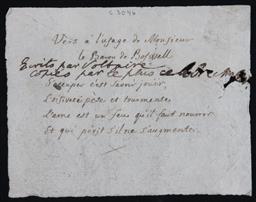 C 3046
Vers à l'usage de Monsieur
le Baron de Boswall
Ecrits par Voltaire
copiés par le plus celebre
S'occuper c'est savoir jouir,
L'oisiveté pèse et tourmente.
L'ame est un feu qu'il faut nourrir
Et qui périt s'il ne s'augmente.